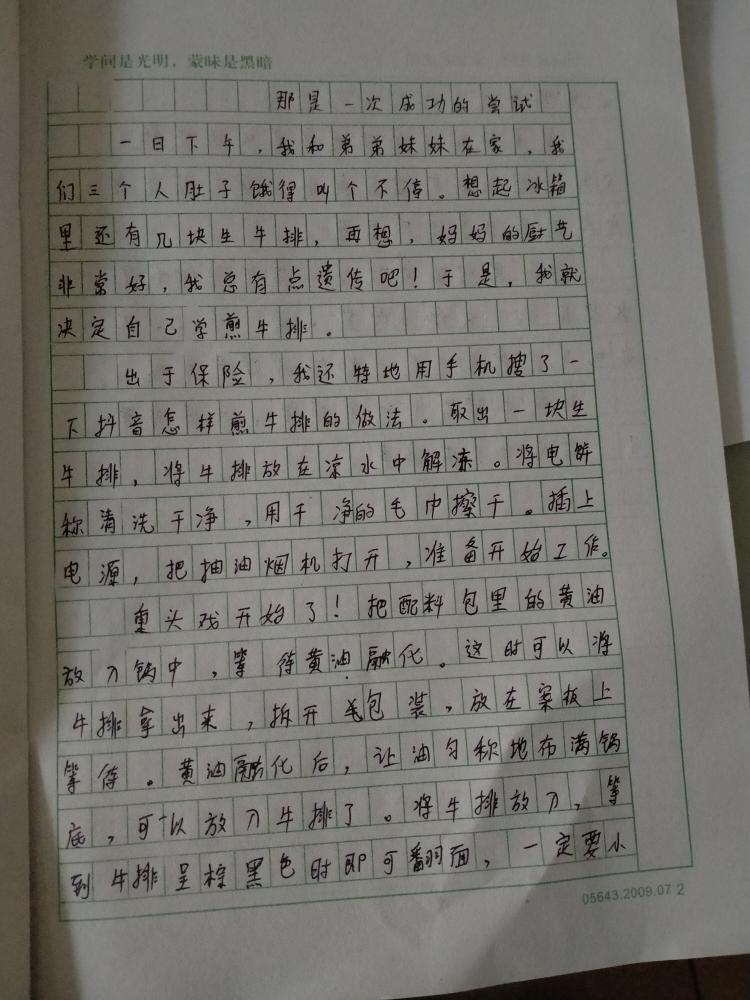 学问是光明，蒙昧是黑暗
那是一次成功的尝试
一日下午，我和弟弟妹妹在家，我
们三个人肚子饿得叫个不停。想起冰箱
里还有几块生牛排，再想，妈妈的厨艺
非常好，我总有点遗传吧！于是，我就
决定自己学煎牛排。
出于保险，我还特地用手机搜了一
下抖音怎样煎牛排的做法。取出一块生
牛排，将牛排放在凉水中解冻。将电饼
称清洗干净，用干净的毛巾擦干。插上
电源，把抽油烟机打开，准备开始工作。
重头戏开始了！把配料包里的黄油
放入锅中，等待黄油融化。这时可以将
牛排拿出来，拆开毛包装，放在案板上
等待。黄油融化后，让油匀称地布满锅
底，可以放入牛排了。将牛排放入，等
到牛排呈棕黑色时即可翻面，一定要小
05643.2009.07 2